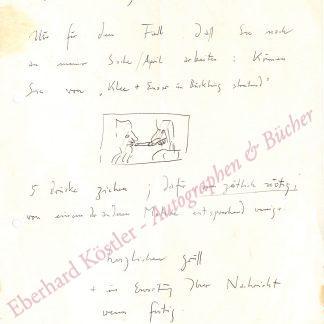 Nur für den Fall daß Sie noch
an meiner Sache / April arbeiten: Können
Sie von „Klee + Ensor in Bückling streitend"
5 Drucke ziehen; dafür
von einem der anderen entsprechend weniger.
herzlichen Gruß
+ in Erwartung Ihrer Nachricht
wenn fertig.
Eberhard Köstler - Autographen & Bücher